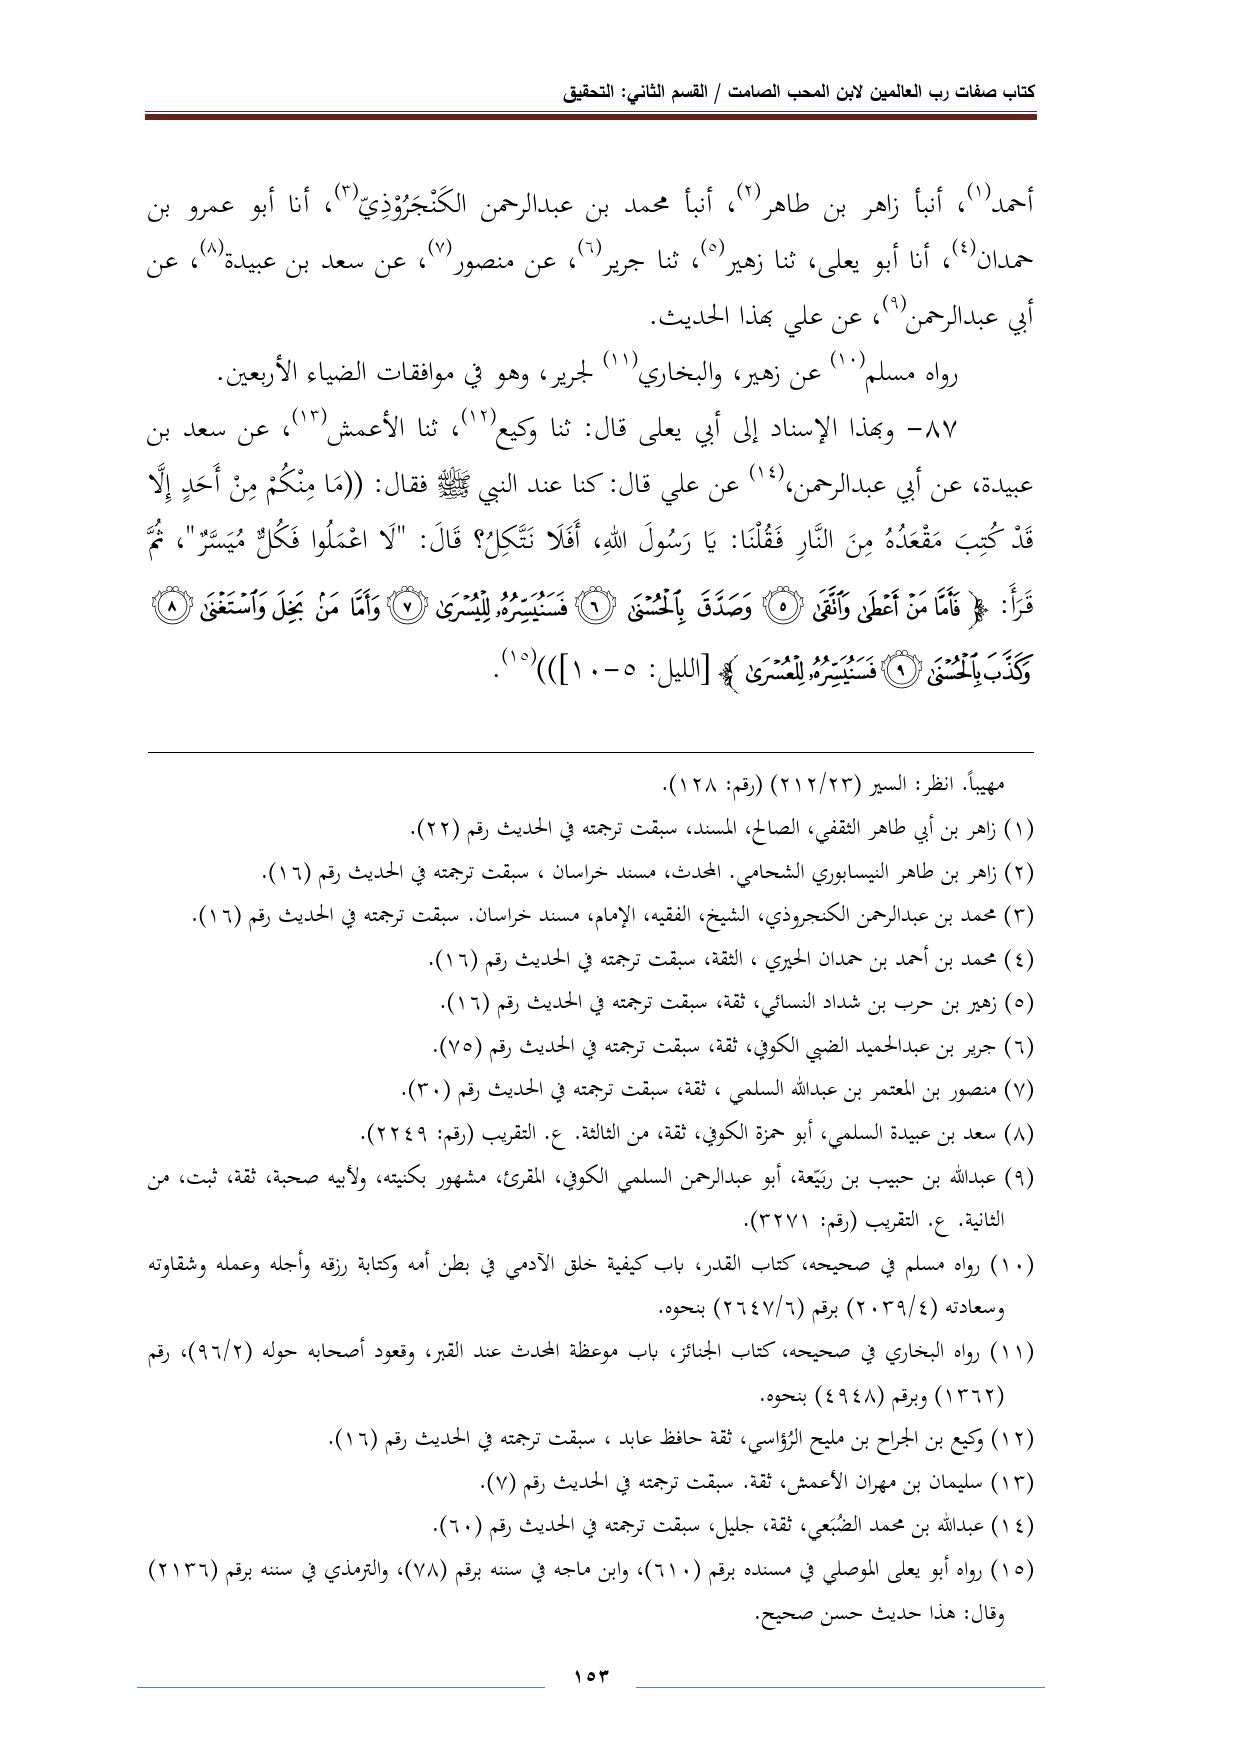 كتاب صفات رب العالمين لابن المحب الصامت / القسم الثاني: التحقيق
أحمد(١)، أنبأ زاهر بن طاهر(٢)، أنبأ محمد بن عبدالرحمن الكَنْجَرُوْذِيّ(٣)، أنا أبو عمرو بن
حمدان(٤)، أنا أبو يعلى، ثنا زهير(٥)، ثنا جرير(٦)، عن منصور(٧)، عن سعد بن عبيدة(٨)، عن
أبي عبدالرحمن(٩)، عن علي بهذا الحديث.
رواه مسلم(١٠) عن زهير، والبخاري(١١) لجرير، وهو في موافقات الضياء الأربعين.
٨٧- وبهذا الإسناد إلى أبي يعلى قال: ثنا وكيع(١٢)، ثنا الأعمش(١٣)، عن سعد بن
عبيدة، عن أبي عبدالرحمن،(١٤) عن علي قال: كنا عند النبي ﷺ فقال: ((مَا مِنْكُمْ مِنْ أَحَدٍ إِلَّا
قَدْ كُتِبَ مَقْعَدُهُ مِنَ النَّارِ فَقُلْنَا: يَا رَسُولَ اللهِ، أَفَلَا نَتَّكِلُ؟ قَالَ: "لَا اعْمَلُوا فَكُلٌّ مُيَسَّرٌ"، ثُمَّ
قَرَأَ: ﴿ فَأَمَّا مَنْ أَعْطَىٰ وَٱتَّقَىٰ ٥ وَصَدَّقَ بِٱلْحُسْنَىٰ ٦ فَسَنُيَسِّرُهُۥ لِلْيُسْرَىٰ ٧ وَأَمَّا مَنۢ بَخِلَ وَٱسْتَغْنَىٰ ٨
وَكَذَّبَ بِٱلْحُسْنَىٰ ٩ فَسَنُيَسِّرُهُۥ لِلْعُسْرَىٰ ﴾ [الليل: ٥-١٠]))(١٥).
مهيباً. انظر: السير (٢١٢/٢٣) (رقم: ١٢٨).
(١) زاهر بن أبي طاهر الثقفي، الصالح، المسند، سبقت ترجمته في الحديث رقم (٢٢).
(٢) زاهر بن طاهر النيسابوري الشحامي. المحدث، مسند خراسان ، سبقت ترجمته في الحديث رقم (١٦).
(٣) محمد بن عبدالرحمن الكنجروذي، الشيخ، الفقيه، الإمام، مسند خراسان. سبقت ترجمته في الحديث رقم (١٦).
(٤) محمد بن أحمد بن حمدان الحيري ، الثقة، سبقت ترجمته في الحديث رقم (١٦).
(٥) زهير بن حرب بن شداد النسائي، ثقة، سبقت ترجمته في الحديث رقم (١٦).
(٦) جرير بن عبدالحميد الضبي الكوفي، ثقة، سبقت ترجمته في الحديث رقم (٧٥).
(٧) منصور بن المعتمر بن عبدالله السلمي ، ثقة، سبقت ترجمته في الحديث رقم (٣٠).
(٨) سعد بن عبيدة السلمي، أبو حمزة الكوفي، ثقة، من الثالثة. ع. التقريب (رقم: ٢٢٤٩).
(٩) عبدالله بن حبيب بن ربَيّعة، أبو عبدالرحمن السلمي الكوفي، المقرئ، مشهور بكنيته، ولأبيه صحبة، ثقة، ثبت، من
الثانية. ع. التقريب (رقم: ٣٢٧١).
(١٠) رواه مسلم في صحيحه، كتاب القدر، باب كيفية خلق الآدمي في بطن أمه وكتابة رزقه وأجله وعمله وشقاوته
وسعادته (٢٠٣٩/٤) برقم (٢٦٤٧/٦) بنحوه.
(١١) رواه البخاري في صحيحه، كتاب الجنائز، باب موعظة المحدث عند القبر، وقعود أصحابه حوله (٩٦/٢)، رقم
(١٣٦٢) وبرقم (٤٩٤٨) بنحوه.
(١٢) وكيع بن الجراح بن مليح الرُؤاسي، ثقة حافظ عابد ، سبقت ترجمته في الحديث رقم (١٦).
(١٣) سليمان بن مهران الأعمش، ثقة. سبقت ترجمته في الحديث رقم (٧).
(١٤) عبدالله بن محمد الضُبَعي، ثقة، جليل، سبقت ترجمته في الحديث رقم (٦٠).
(١٥) رواه أبو يعلى الموصلي في مسنده برقم (٦١٠)، وابن ماجه في سننه برقم (٧٨)، والترمذي في سننه برقم (٢١٣٦)
وقال: هذا حديث حسن صحيح.
١٥٣